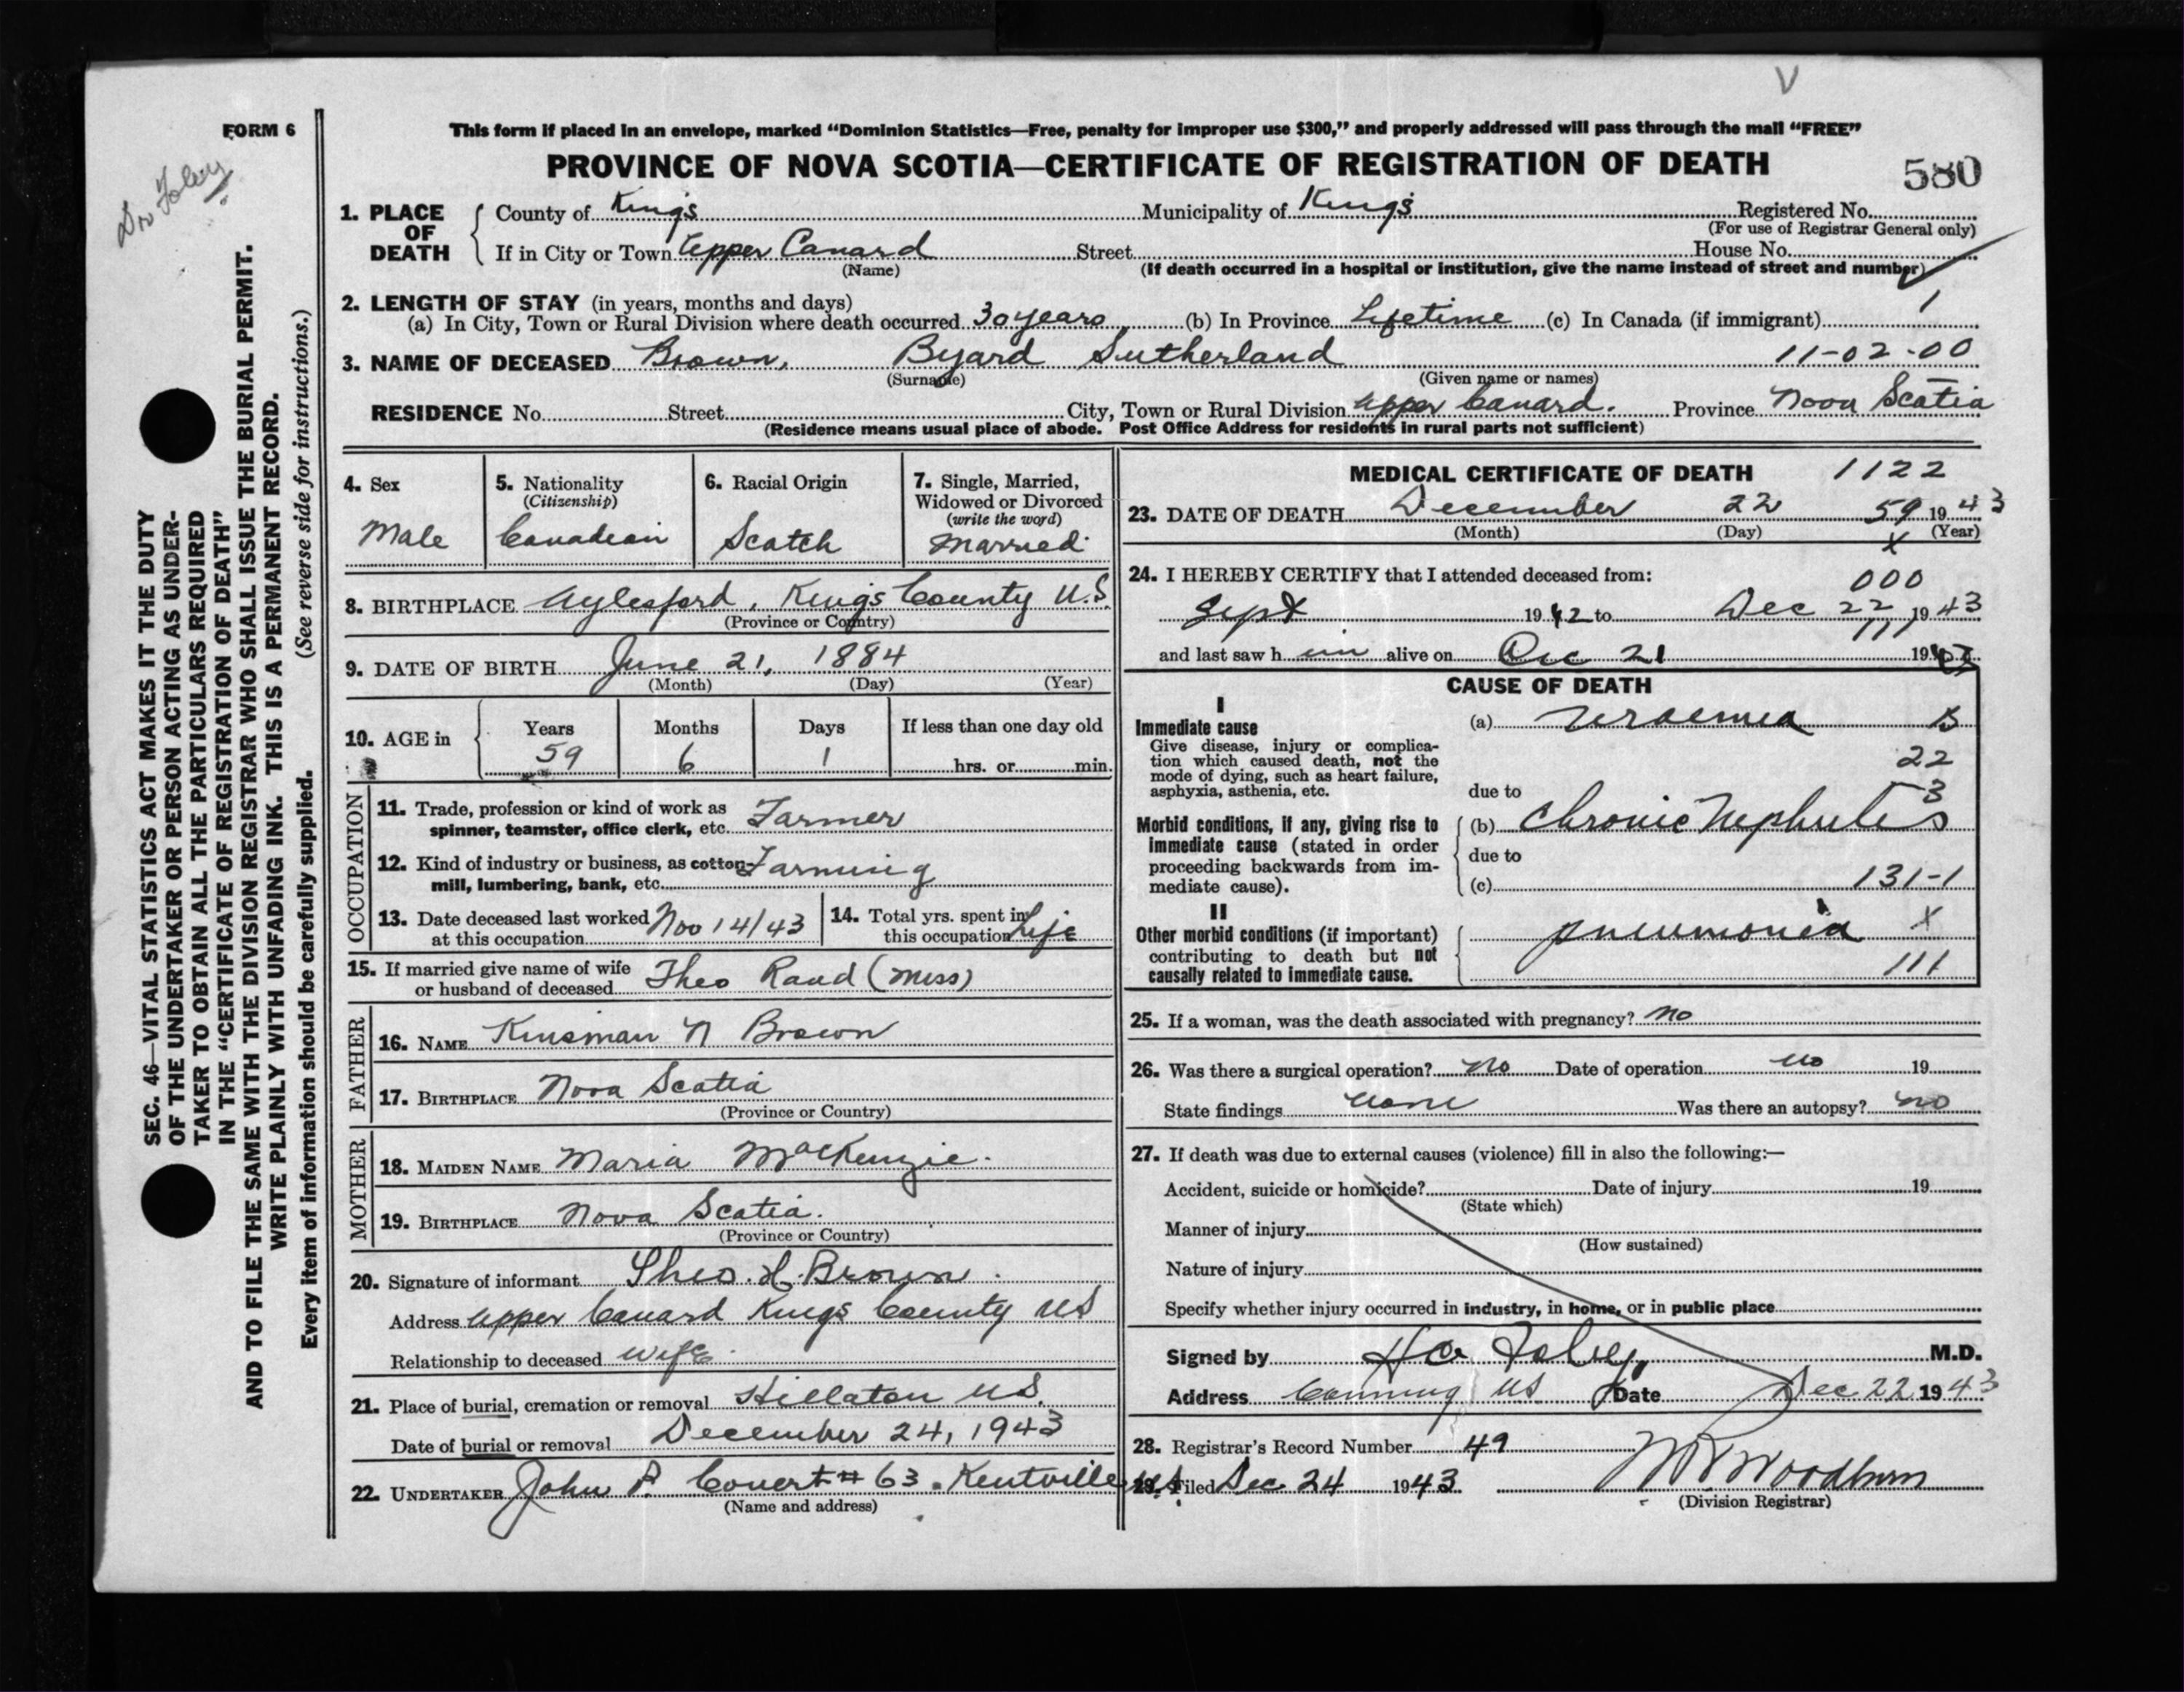 V
FORM 6
This form if placed in an envelope, marked “Dominion Statistics—Free, penalty for improper use $300,” and properly addressed will pass through the mail “FREE”
PROVINCE OF NOVA SCOTIA—CERTIFICATE OF REGISTRATION OF DEATH
580
Dr Foley
SEC. 46—VITAL STATISTICS ACT MAKES IT THE DUTY
OF THE UNDERTAKER OR PERSON ACTING AS UNDER-
TAKER TO OBTAIN ALL THE PARTICULARS REQUIRED
IN THE “CERTIFICATE OF REGISTRATION OF DEATH”
AND TO FILE THE SAME WITH THE DIVISION REGISTRAR WHO SHALL ISSUE THE BURIAL PERMIT.
WRITE PLAINLY WITH UNFADING INK. THIS IS A PERMANENT RECORD.
Every item of information should be carefully supplied. (See reverse side for instructions.)
1. PLACE OF DEATH County of Kings Municipality of Kings Registered No.
(For use of Registrar General only)
If in City or Town Upper Canard Street House No.
(Name) (If death occurred in a hospital or institution, give the name instead of street and number)
2. LENGTH OF STAY (in years, months and days) 1
(a) In City, Town or Rural Division where death occurred 30 years (b) In Province Lifetime (c) In Canada (if immigrant)
3. NAME OF DECEASED Brown, Byard Sutherland 11-02-00
(Surname) (Given name or names)
RESIDENCE No. Street City, Town or Rural Division Upper Canard. Province Nova Scotia
(Residence means usual place of abode. Post Office Address for residents in rural parts not sufficient)
4. Sex
Male
5. Nationality
(Citizenship)
Canadian
6. Racial Origin
Scotch
7. Single, Married,
Widowed or Divorced
(write the word)
Married
8. BIRTHPLACE Aylesford, Kings County N.S.
(Province or Country)
9. DATE OF BIRTH June 21, 1884
(Month) (Day) (Year)
10. AGE in Years Months Days If less than one day old
59 6 1 hrs. or min.
OCCUPATION
11. Trade, profession or kind of work as
spinner, teamster, office clerk, etc. Farmer
12. Kind of industry or business, as cotton-
mill, lumbering, bank, etc. Farming
13. Date deceased last worked
at this occupation Nov 14/43
14. Total yrs. spent in
this occupation Life
15. If married give name of wife
or husband of deceased Theo Rand (Miss)
FATHER
16. NAME Kinsman N Brown
17. BIRTHPLACE Nova Scotia
(Province or Country)
MOTHER
18. MAIDEN NAME Maria MacKenzie.
19. BIRTHPLACE Nova Scotia.
(Province or Country)
20. Signature of informant Theo. H. Brown.
Address Upper Canard Kings County NS
Relationship to deceased wife.
21. Place of burial, cremation or removal Hillaton NS.
Date of burial or removal December 24, 1943
22. UNDERTAKER John P. Covert # 63. Kentville N.S.
(Name and address)
MEDICAL CERTIFICATE OF DEATH 1122
23. DATE OF DEATH December 22 59 1943
(Month) (Day) (Year)
X
24. I HEREBY CERTIFY that I attended deceased from:
000
Sept 1942 to Dec 22 1943
111
and last saw him alive on Dec 21 1943
CAUSE OF DEATH
I
Immediate cause
Give disease, injury or complica-
tion which caused death, not the
mode of dying, such as heart failure,
asphyxia, asthenia, etc.
(a) Uraemia
22
due to
3
Morbid conditions, if any, giving rise to
immediate cause (stated in order
proceeding backwards from im-
mediate cause).
(b) Chronic Nephritis
due to
(c) 131-1
II
Other morbid conditions (if important)
contributing to death but not
causally related to immediate cause.
pneumonia X
111
25. If a woman, was the death associated with pregnancy? No
26. Was there a surgical operation? No Date of operation no 19
State findings none Was there an autopsy? no
27. If death was due to external causes (violence) fill in also the following:—
Accident, suicide or homicide? Date of injury 19
(State which)
Manner of injury
(How sustained)
Nature of injury
Specify whether injury occurred in industry, in home, or in public place
Signed by Foley, M.D.
Address Canning NS Date Dec 22 1943
28. Registrar's Record Number 49
29. Filed Dec 24 1943 Woodburn
(Division Registrar)